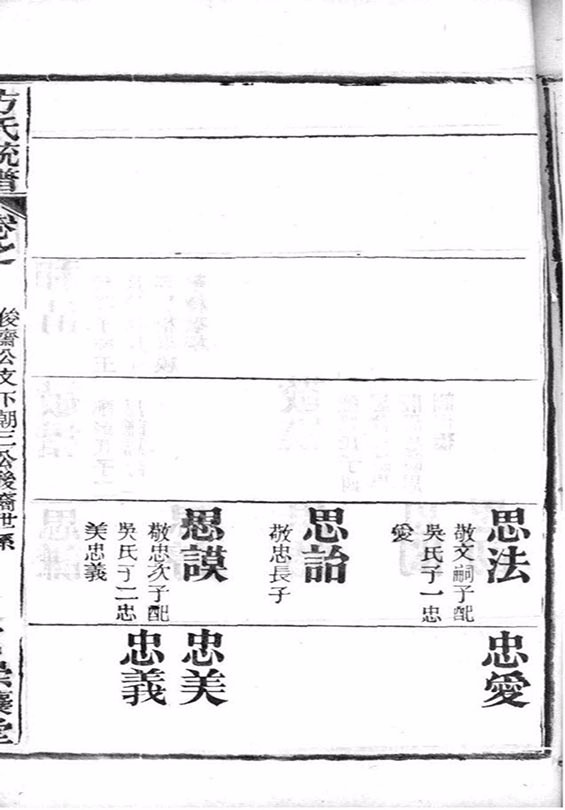 思法
敬文嗣子配
吳氏子一忠
愛
思詒
敬忠長子
思謨
敬忠次子配
吳氏子二忠
美忠義
忠愛
忠美
忠義
方氏統譜
卷之
俊齋公支下朝三公後裔世系